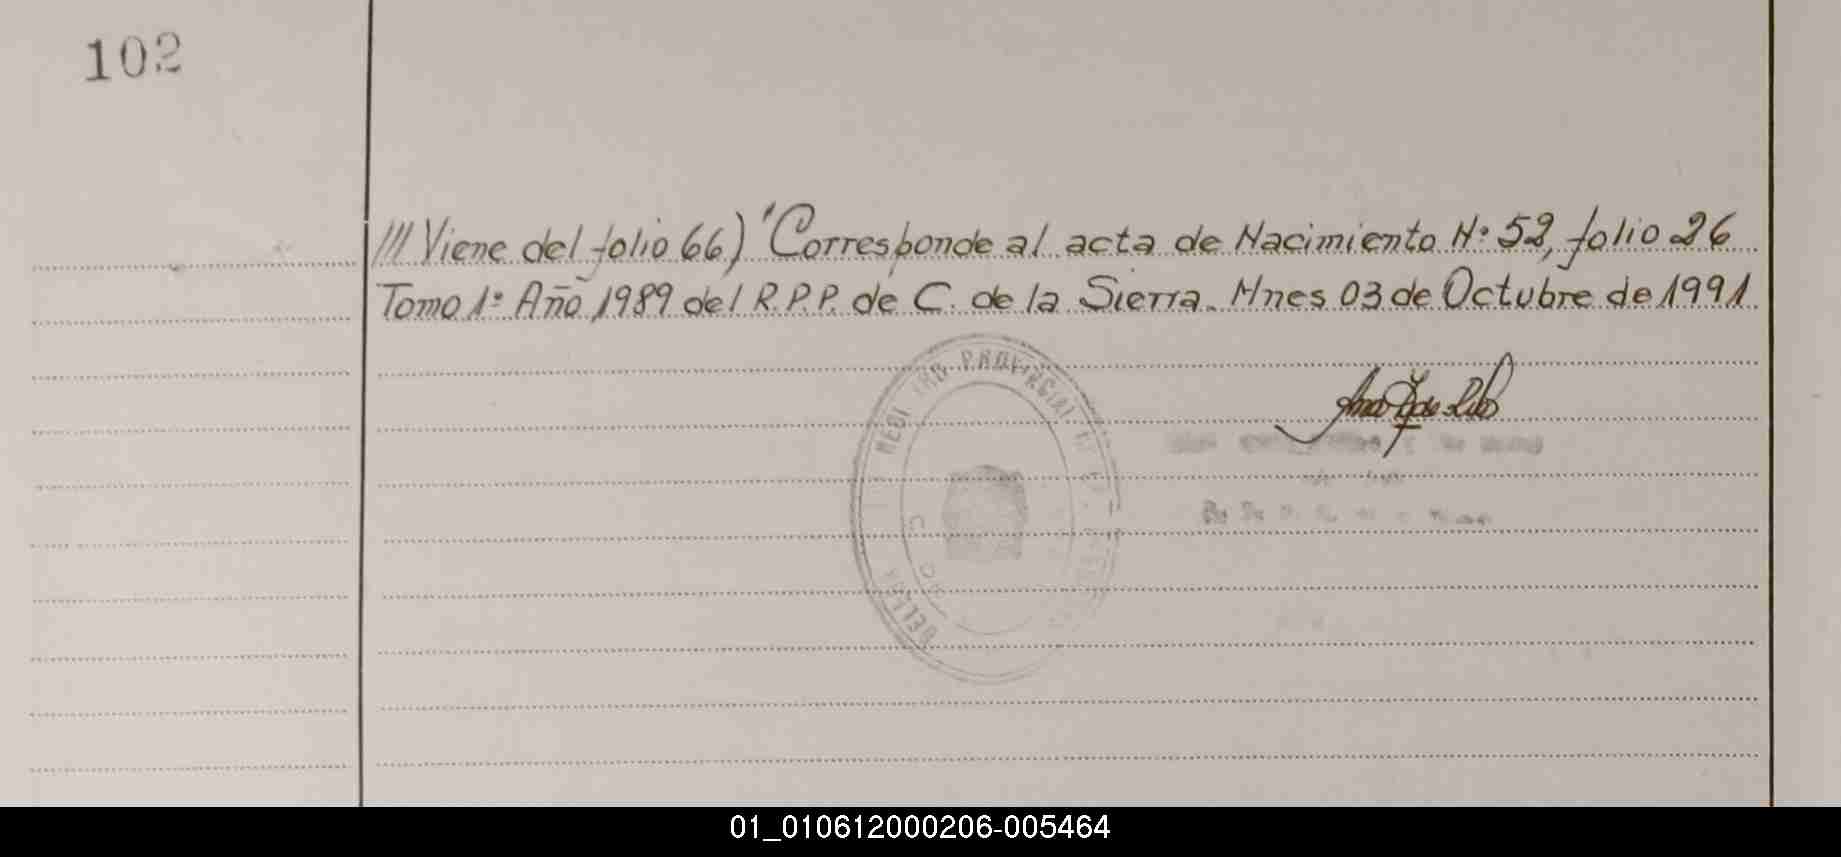 102
/// Viene del folio 66) "Corresponde al acta de Nacimiento Nº 52, folio 26
Tomo 1º Año 1989 del R.P.P. de C. de la Sierra. Mnes 03 de Octubre de 1991
PROVINCIAL
01_010612000206-005464